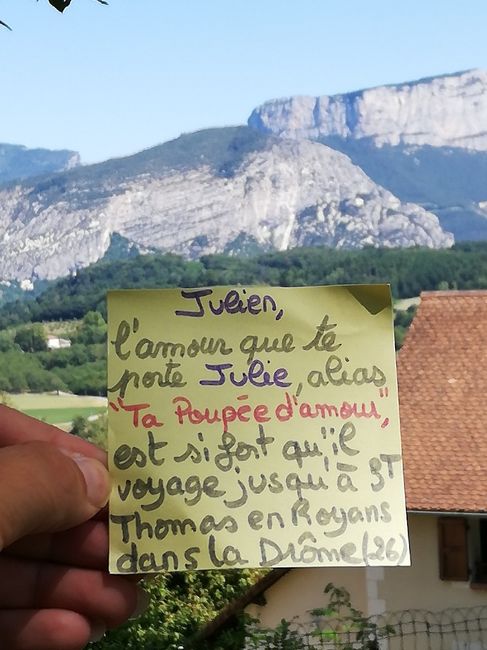 Julien,
l'amour que te
porte Julie, alias
"Ta Poupée d'amour",
est si fort qu'il
voyage jusqu'à ST
Thomas en Royans
dans la Drôme (26)